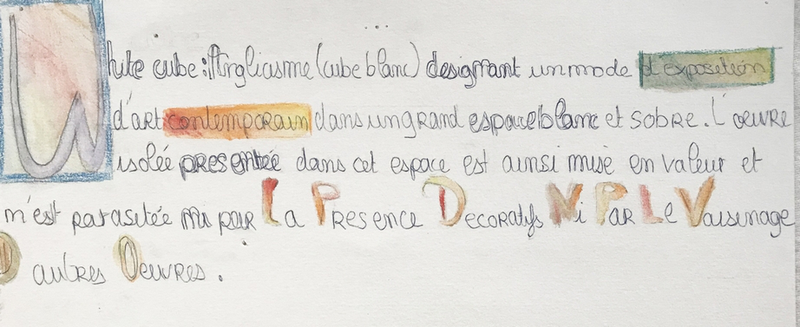 White cube : Angliasme (cube blanc) designant un mode d'exposition
d'art contemporain dans un grand espace blanc et sobre. L'œuvre
isolée presentée dans cet espace est ainsi mise en valeur et
m'est parasitée ni par La Presence Decoratifs Ni Par Le Vaisinage
D autres Oeuvres .